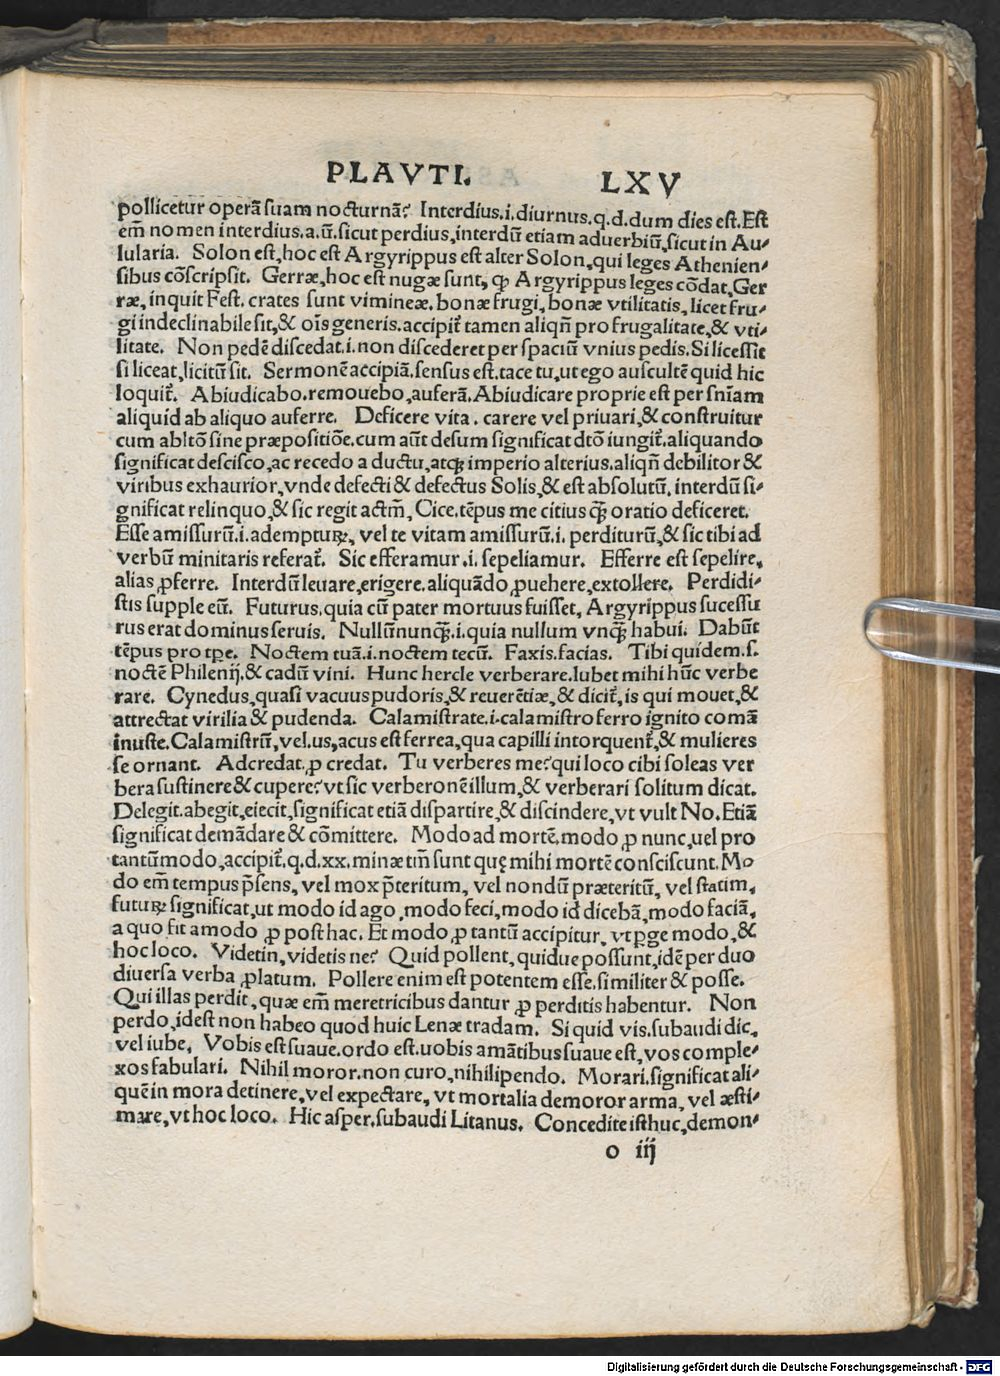 PLAVTI. LXV
pollicetur operā suam nocturnā? Interdius.i.diurnus.q.d.dum dies est.Est
em̄ nomen interdius.a.ū.sicut perdius,interdū etiam aduerbiū,sicut in Au⸗
lularia. Solon est,hoc est Argyrippus est alter Solon,qui leges Athenien⸗
sibus cōscripsit. Gerræ,hoc est nugæ sunt, ꝙ Argyrippus leges cōdat,Ger
ræ,inquit Fest. crates sunt vimineæ. bonæ frugi, bonæ vtilitatis, licet fru⸗
gi indeclinabile sit,& oīs generis.accipit᷑ tamen aliqñ pro frugalitate,& vti⸗
litate. Non pedē discedat.i.non discederet per spaciū vnius pedis.Si licessit
si liceat,licitū sit. Sermonē accipiā.sensus est.tace tu,ut ego auscultē quid hic
loquit᷑. Abiudicabo.remouebo,auferā.Abiudicare proprie est per sñiam
aliquid ab aliquo auferre. Deficere vita. carere vel priuari,& construitur
cum abltō sine præpositiōe.cum aūt desum significat dtō iungit᷑.aliquando
significat descisco,ac recedo a ductu,atqꝫ imperio alterius.aliqñ debilitor &
viribus exhaurior,vnde defecti & defectus Solis,& est absolutū. interdū si⸗
gnificat relinquo,& sic regit actm̄, Cice.tēpus me citius ꝗ̄ oratio deficeret.
Esse amissurū.i.adempturꝝ, vel te vitam amissurū.i. perditurū,& sic tibi ad
verbū minitaris referat᷑. Sic efferamur.i.sepeliamur. Efferre est sepelire,
alias ꝓferre. Interdū leuare,erigere.aliquādo ꝓuehere,extollere. Perdidi⸗
stis supple eū. Futurus,quia cū pater mortuus fuisset, Argyrippus sucessu
rus erat dominus seruis. Nullū nunꝗ̄.i.quia nullum vnꝗ̄ habui. Dabūt
tēpus pro tꝑe. Noctem tuā.i.noctem tecū. Faxis.facias. Tibi quidem.s.
noctē Philenij.& cadū vini. Hunc hercle verberare.lubet mihi hūc verbe
rare. Cynedus,quasi vacuus pudoris,& reuerētiæ,& dicit᷑,is qui mouet,&
attrectat virilia & pudenda. Calamistrate.i.calamistro ferro ignito comā
inuste.Calamistrū,vel.us,acus est ferrea,qua capilli intorquent᷑,& mulieres
se ornant. Adcredat.ꝓ credat. Tu verberes me?qui loco cibi soleas ver
bera sustinere & cupere?vt sic verberonē illum,& verberari solitum dicat.
Delegit.abegit,eiecit,significat etiā dispartire,& discindere,vt vult No.Etiā
significat demādare & cōmittere. Modo ad mortē.modo ꝓ nunc,uel pro
tantūmodo,accipit᷑.q.d.xx.minæ tm̄ sunt quę mihi mortē consciscunt.Mo
do em̄ tempus p̄sens, vel mox p̄teritum, vel nondū præteritū, vel statim,
futurꝝ significat,ut modo id ago,modo feci,modo id dicebā,modo faciā,
a quo fit amodo ꝓ posthac. Et modo ꝓ tantū accipitur, vt ꝑge modo,&
hoc loco. Videtin,videtis ne? Quid pollent,quidue possunt,idē per duo
diuersa verba ꝓlatum. Pollere enim est potentem esse.similiter & posse.
Qui illas perdit,quæ em̄ meretricibus dantur ꝓ perditis habentur. Non
perdo,idest non habeo quod huic Lenæ tradam. Si quid vis.subaudi dic,
vel iube. Vobis est suaue.ordo est.uobis amātibus suaue est,vos comple⸗
xos fabulari. Nihil moror.non curo,nihilipendo. Morari.significat ali⸗
quē in mora detinere,vel expectare, vt mortalia demoror arma, vel æsti⸗
mare,vt hoc loco. Hic asper.subaudi Litanus. Concedite isthuc,demon⸗
o iij
Digitalisierung gefördert durch die Deutsche Forschungsgemeinschaft - DFG